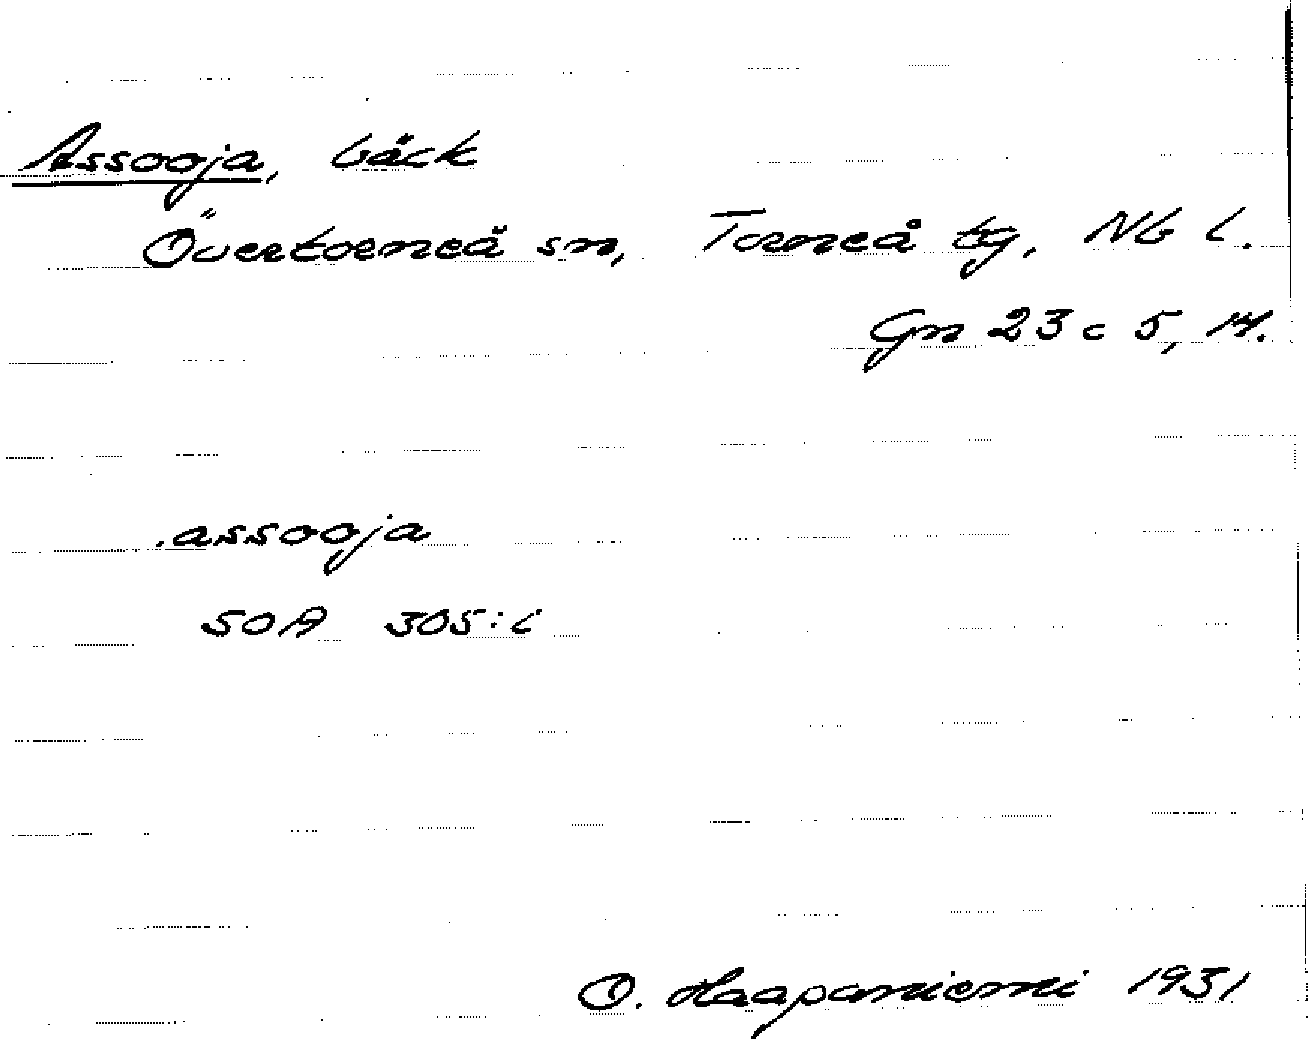 Assooja, bäck
Övertorneå sn, Torneå tg, Nb l.
Gn 23 c 5, 14.
.assooja
SOA 305:l
O. Haapaniemi 1931